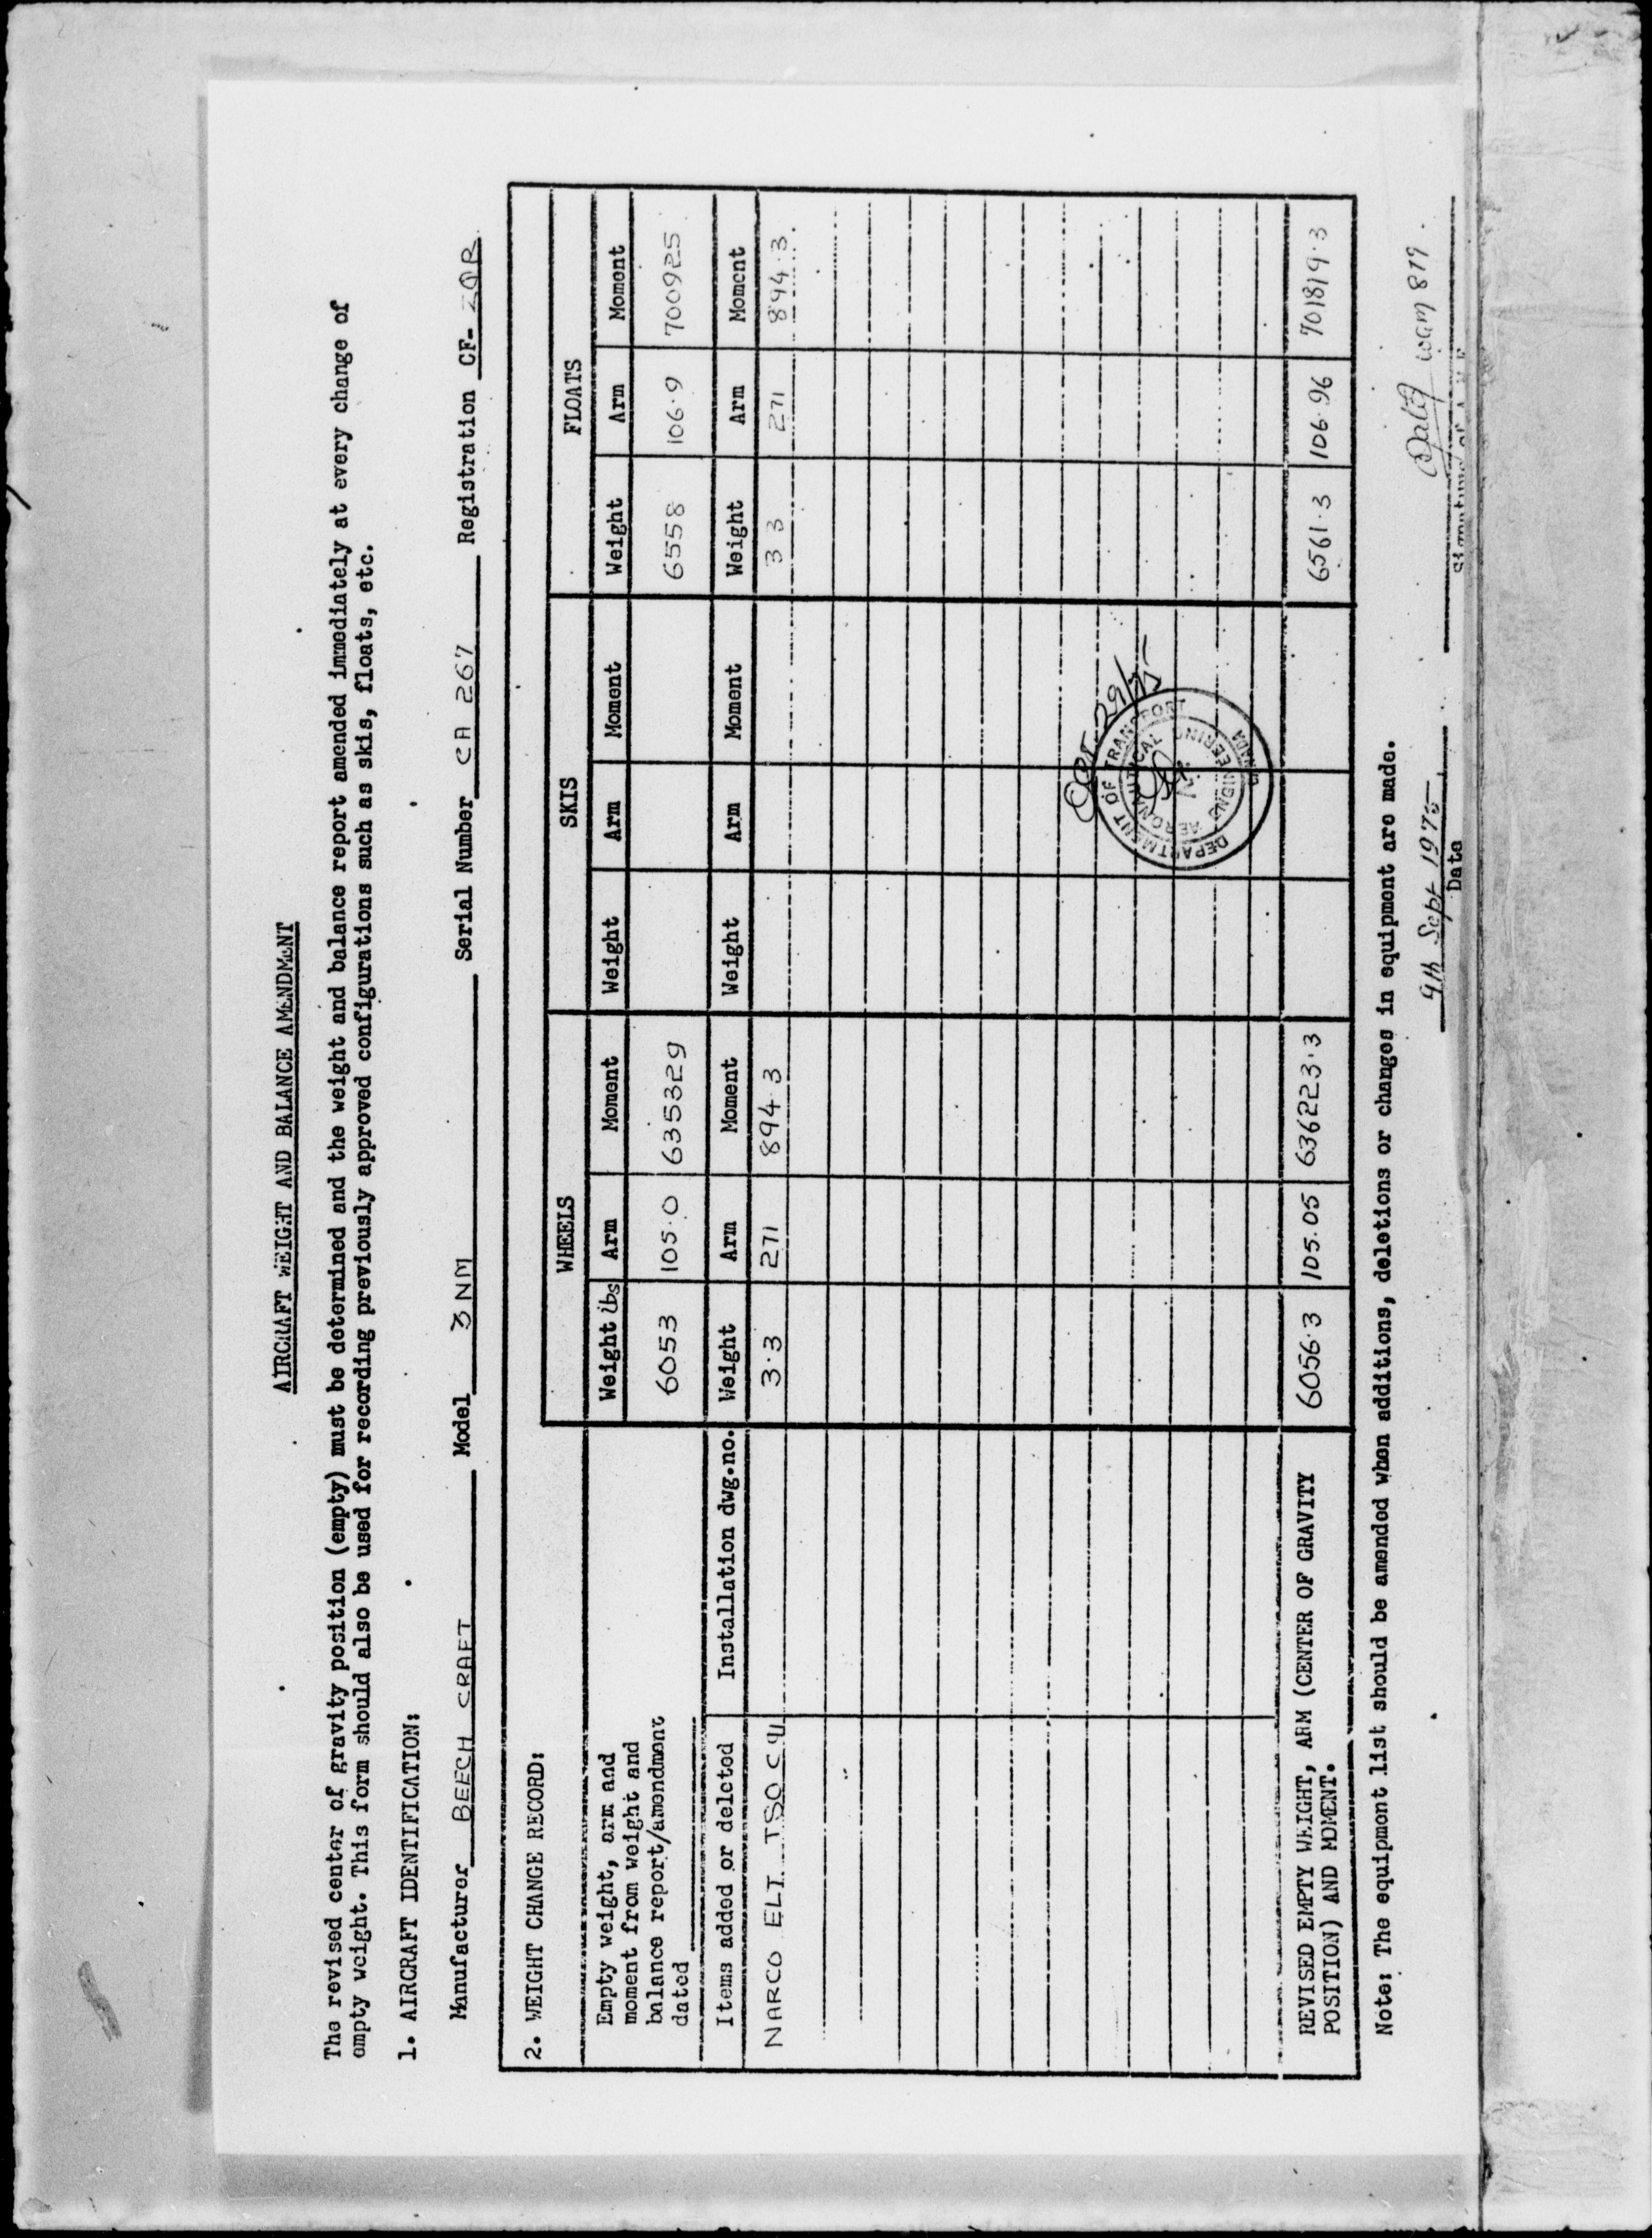 AIRCRAFT WEIGHT AND BALANCE AMENDMENT
The revised center of gravity position (empty) must be determined and the weight and balance report amended immediately at every change of
empty weight. This form should also be used for recording previously approved configurations such as skis, floats, etc.
1. AIRCRAFT IDENTIFICATION:
Manufacturer BEECH CRAFT Model 3NM Serial Number CA 267 Registration CF- ZQR
2. WEIGHT CHANGE RECORD:
WHEELS SKIS FLOATS
Empty weight, arm and
moment from weight and
balance report/amendment
dated
Weight lbs Arm Moment Weight Arm Moment Weight Arm Moment
6053 105.0 635329 6558 106.9 700925
Items added or deleted Installation dwg.no. Weight Arm Moment Weight Arm Moment Weight Arm Moment
NARCO ELT TSO C91 3.3 271 894.3 3 3 271 894.3
OCT 29/75
DEPARTMENT OF TRANSPORT
AERONAUTICAL ENGINEERING
CANADA
REVISED EMPTY WEIGHT, ARM (CENTER OF GRAVITY
POSITION) AND MOMENT.
6056.3 105.05 636223.3 6561.3 106.96 701819.3
Note: The equipment list should be amended when additions, deletions or changes in equipment are made.
9th Sept 1975 WGM 879
Date Signature of A.M.E.